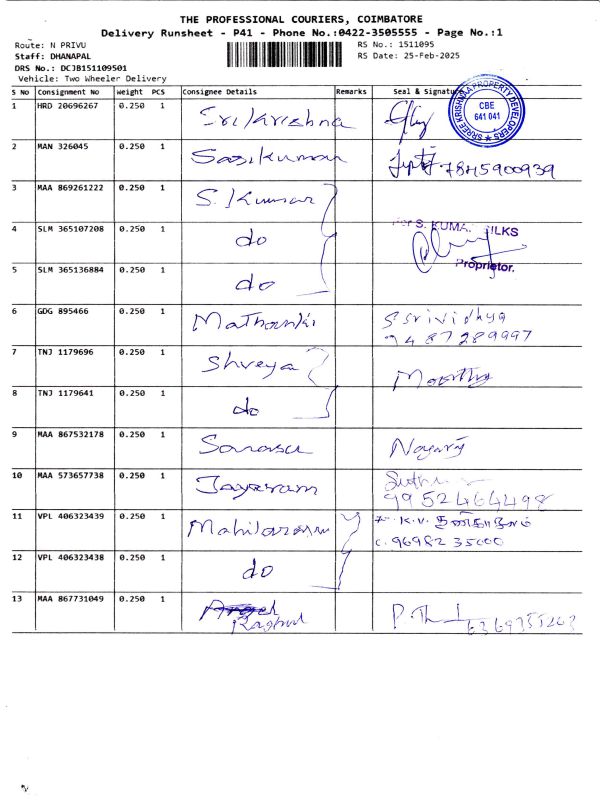 THE PROFESSIONAL COURIERS, COIMBATORE
Delivery Runsheet - P41 - Phone No.:0422-3505555 - Page No.:1
Route: N PRIVU
RS No.: 1511095
Staff: DHANAPAL
RS Date: 25-Feb-2025
DRS No.: DCJB151109501
Vehicle: Two Wheeler Delivery
S No Consignment No Weight PCS Consignee Details Remarks Seal & Signature
1 HRD 20696267 0.250 1 Sri Krishna
SHREE KRISHNAA PROPERTY DEVELOPERS
CBE
641 041
2 MAN 326045 0.250 1 Sasikumar 7845900939
3 MAA 869261222 0.250 1 S. Kumar
4 SLM 365107208 0.250 1 do
For S. KUMAR SILKS
Proprietor.
5 SLM 365136884 0.250 1 do
6 GDG 895466 0.250 1 Mathanki S Srividhya
9487289997
7 TNJ 1179696 0.250 1 Shreya Moorthy
8 TNJ 1179641 0.250 1 do
9 MAA 867532178 0.250 1 Sarasu Nagaraj
10 MAA 573657738 0.250 1 Jayaram
9952464498
11 VPL 406323439 0.250 1 K.V.
C. 96982 35000
12 VPL 406323438 0.250 1 do
13 MAA 867731049 0.250 1 P. Th